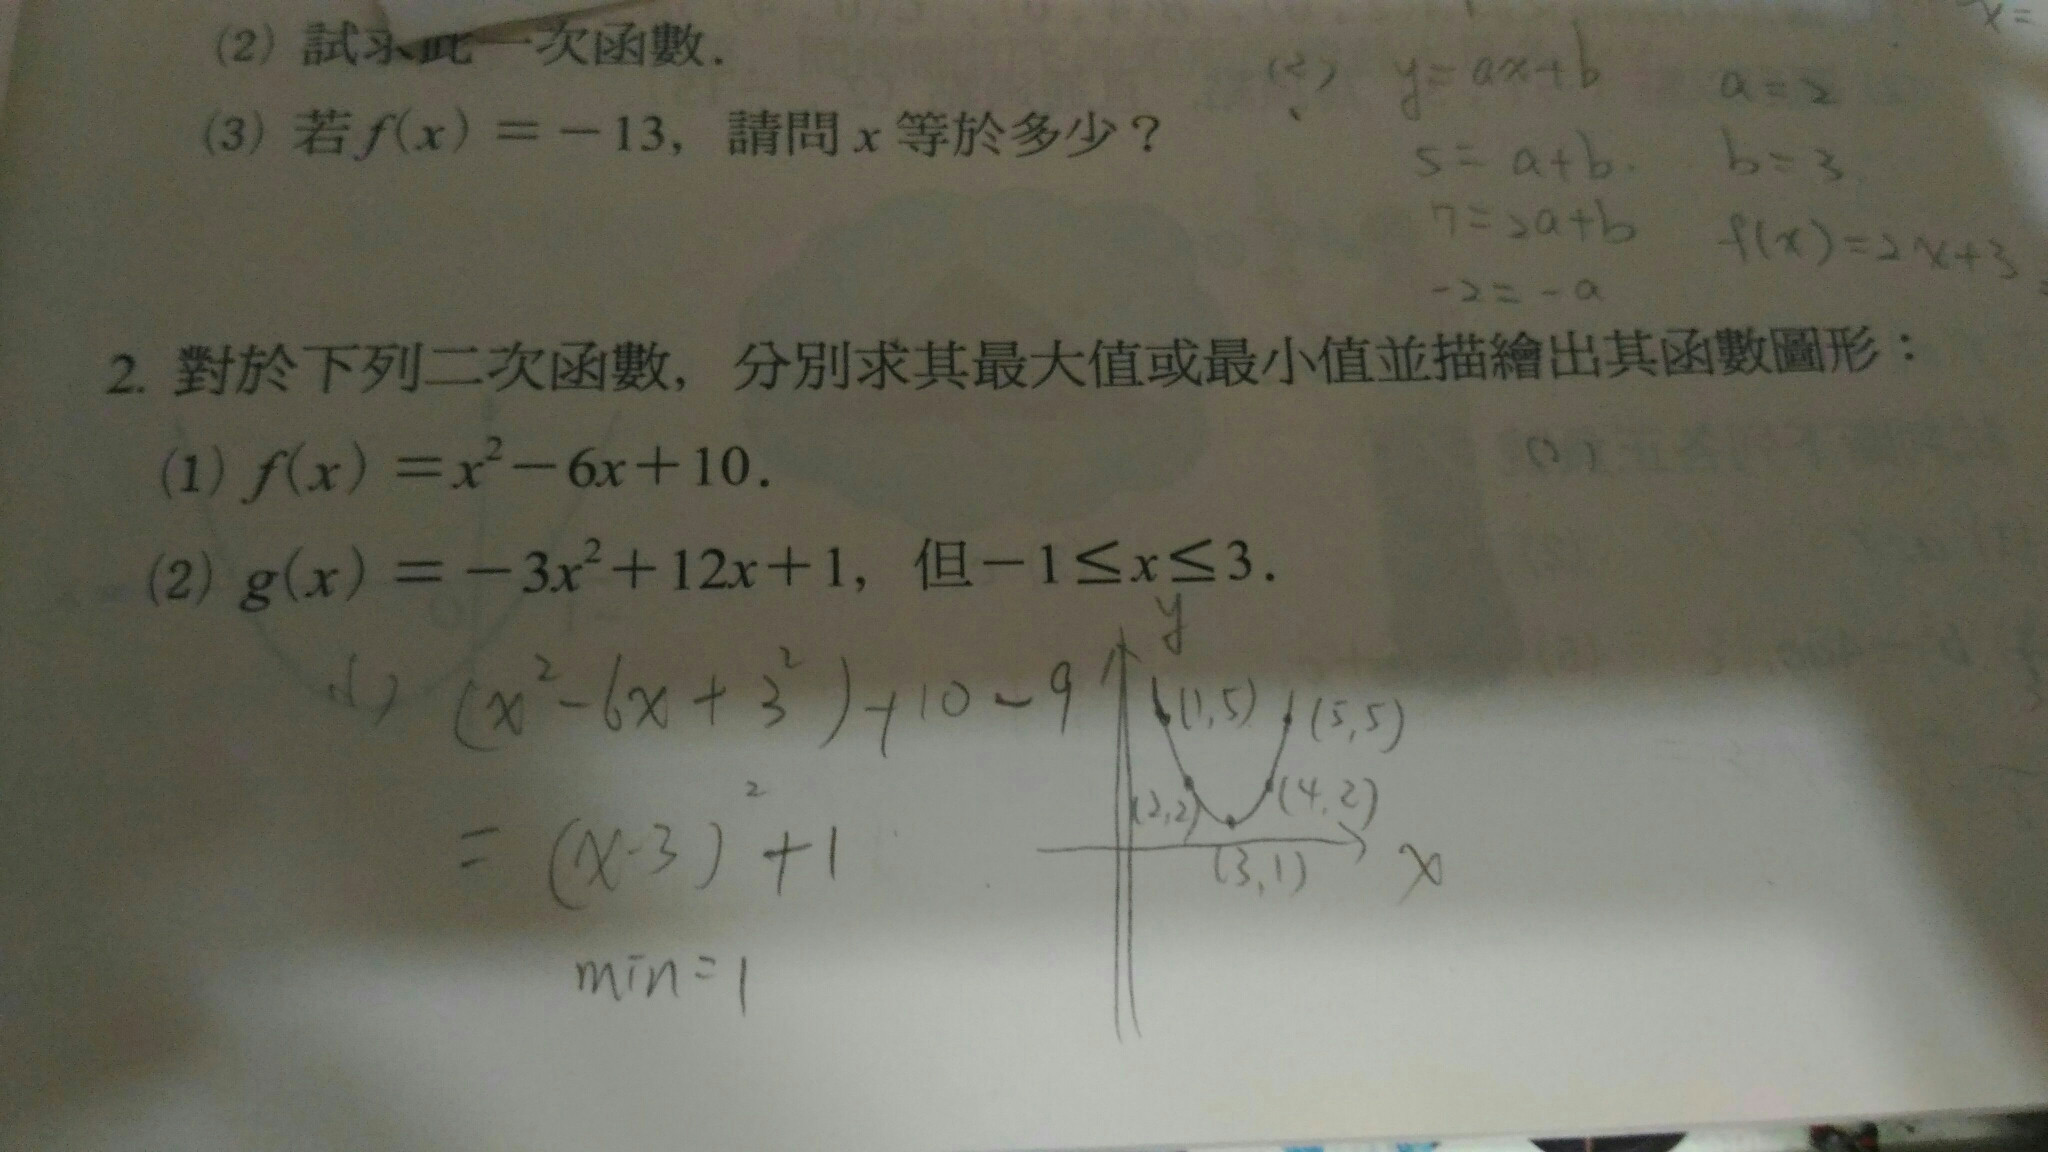 (2) 試求此一次函數.
(3) 若 f(x) = -13, 請問 x 等於多少?
x=
(2) y=ax+b
5=a+b.
7=2a+b
-2=-a
a=2
b=3
f(x)=2x+3
2. 對於下列二次函數, 分別求其最大值或最小值並描繪出其函數圖形:
(1) f(x) = x²-6x+10.
(2) g(x) = -3x²+12x+1, 但-1≤x≤3.
(1) (x²-6x+3²)+10-9
=(x-3)²+1
min=1
y
(1,5) (5,5)
(2,2) (4,2)
(3,1) x